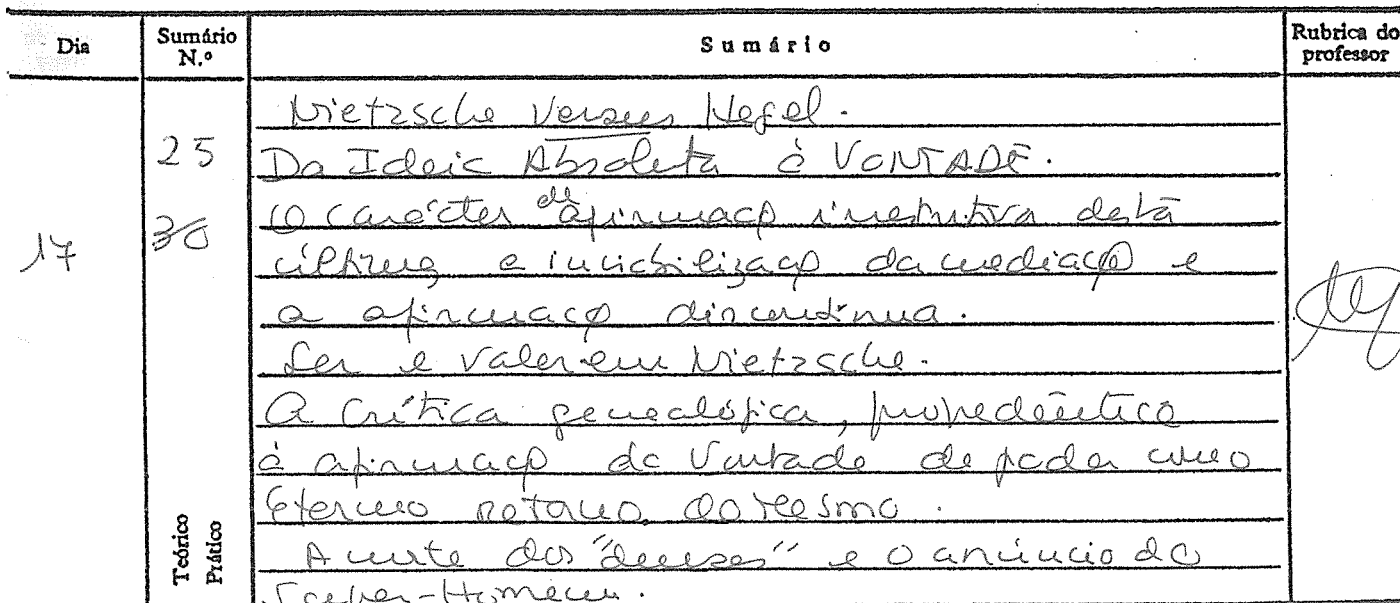 Dia
Sumário N.º
Sumário
Rubrica do professor
17
25
30
Nietzsche Versus Hegel.
Da Ideia Absoluta à VONTADE.
O carácter de afirmaçº desta
última, a da mediaçº e
a afirmaçº discontínua.
Ser e valer em Nietzsche.
A Crítica genealógica, propedêutica
à afirmaçº da Vontade de poder como
Eterno retorno do mesmo.
A morte dos "deuses" e o anúncio do
Super-Homem.
Teórico
Prático